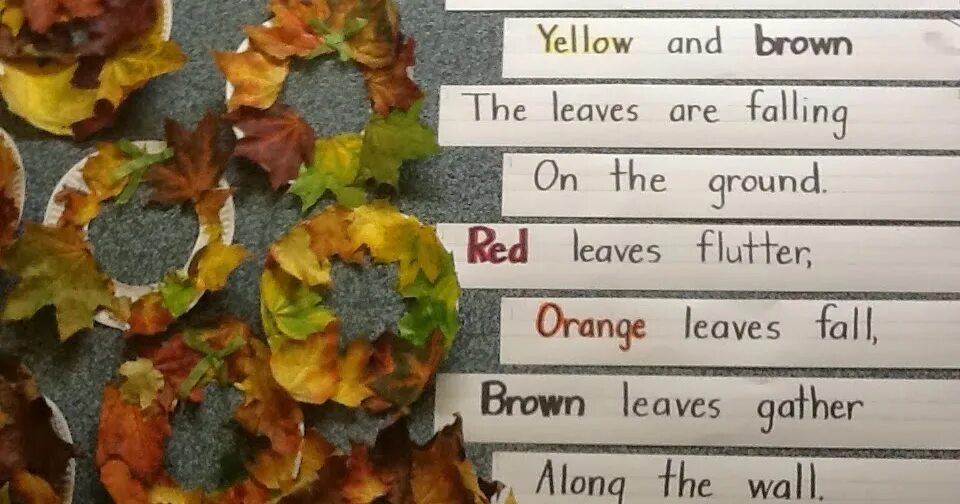 Yellow and brown
The leaves are falling
On the ground.
Red leaves flutter,
Orange leaves fall,
Brown leaves gather
Along the wall.